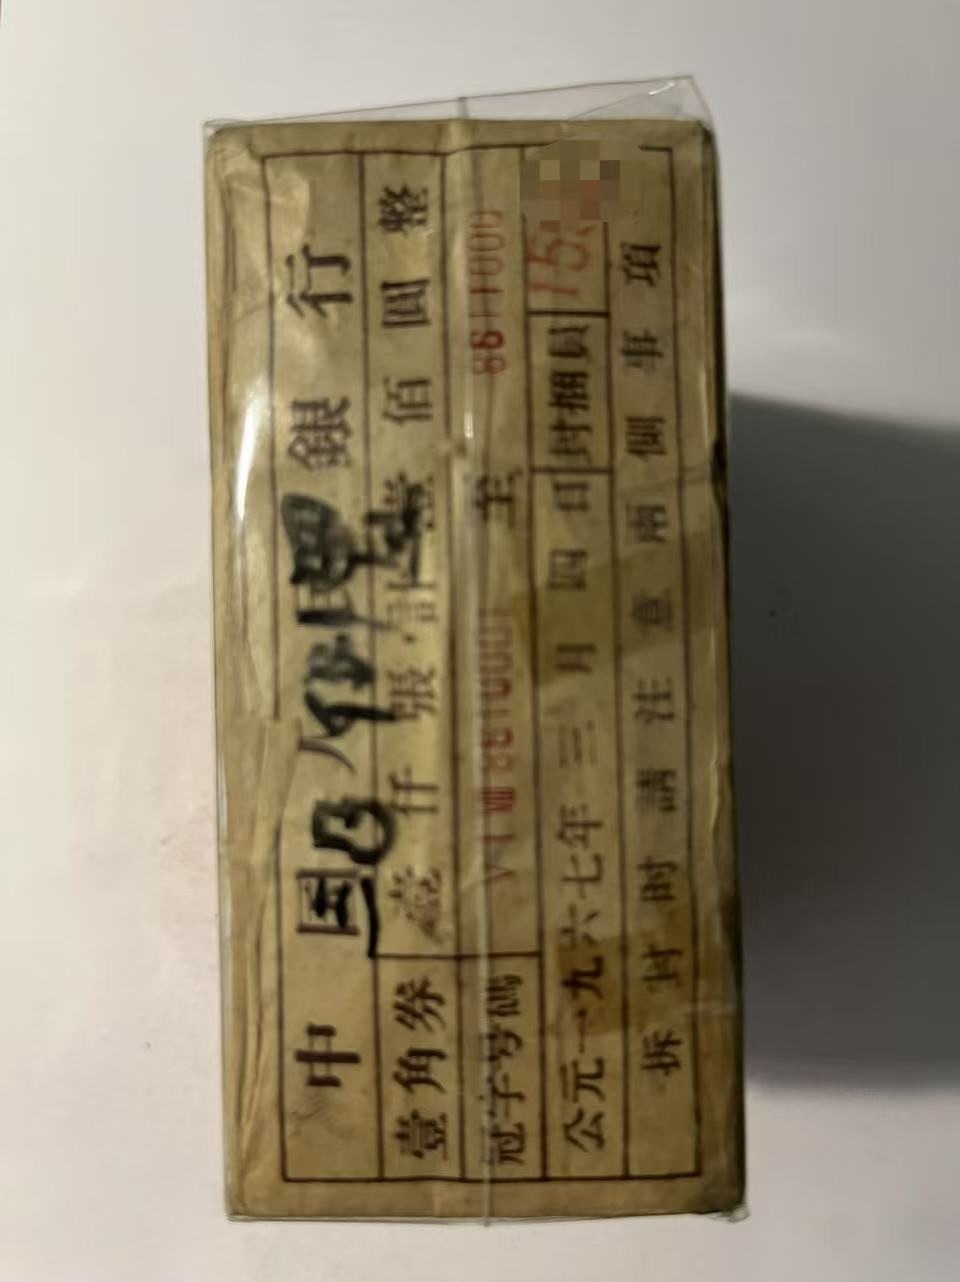 中国 銀行
壹角券 壹仟張·計壹佰圓整
冠字号碼 至 8611000
公元一九六七年三月四日 封捆員 15
拆封时請注意兩側事項